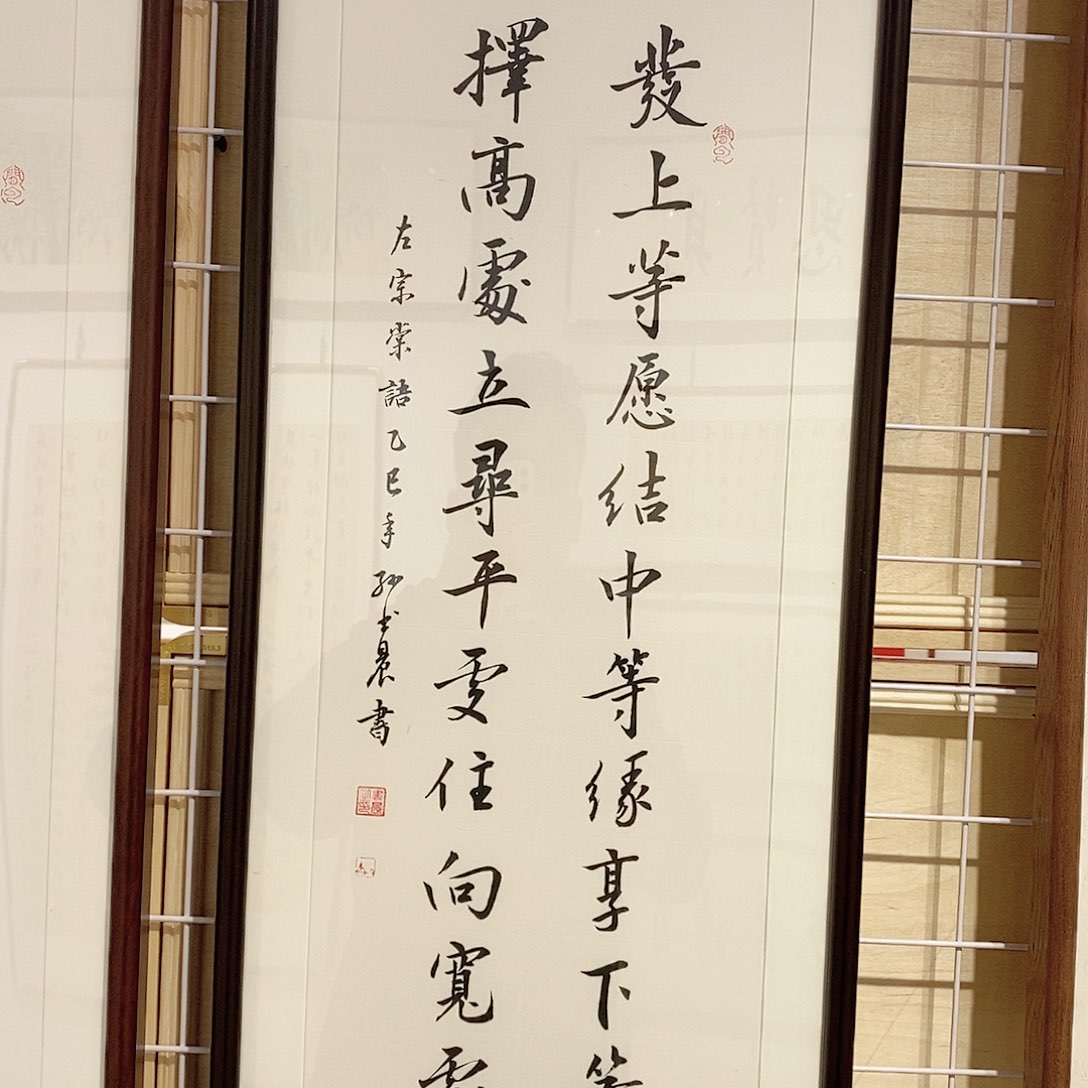 發上等愿结中等缘享下等
擇高處立尋平处住向寬處
左宗棠語乙巳年孙书晨書